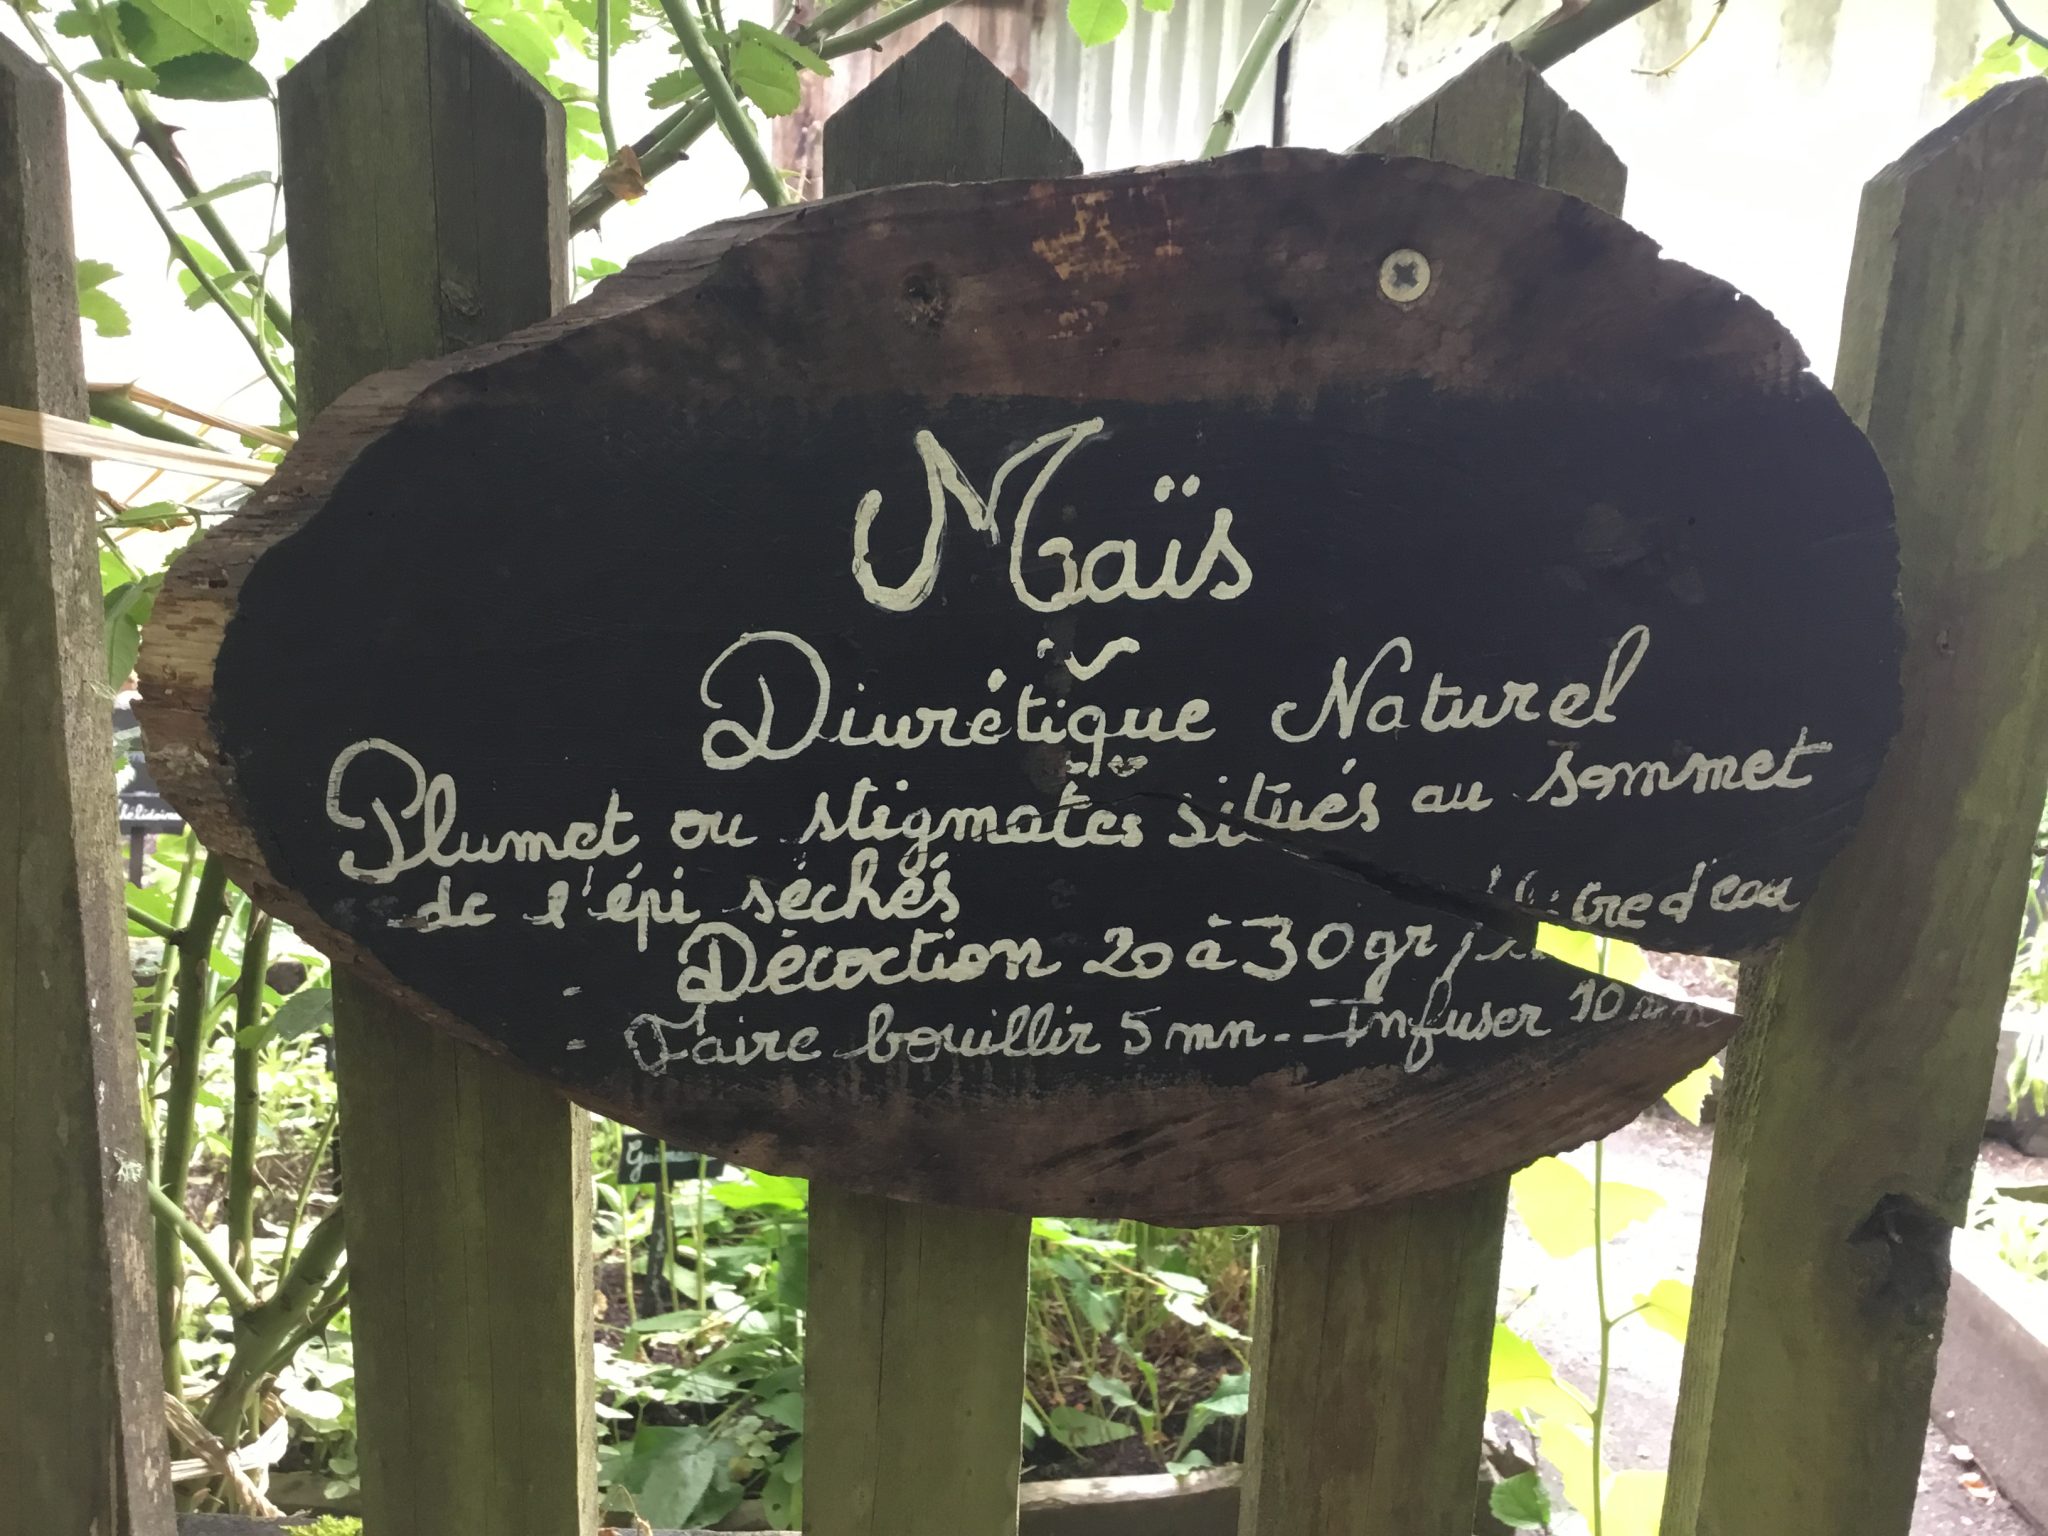 Maïs
Diurétique Naturel
Plumet ou stigmates situés au sommet
de l'épi séchés
- Décoction 20 à 30 gr d'eau
- Faire bouillir 5 mn - Infuser 10 mn